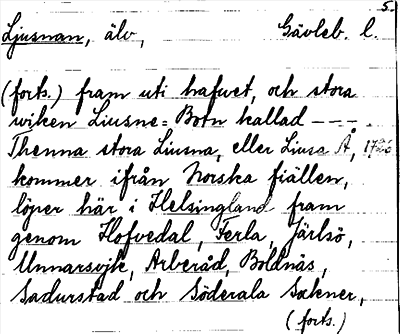 5.
Ljusnan, älv, Gävleb. l.
(forts.) fram uti hafwet, och stora
wiken Liusne=Botn kallad ---
Thenna stora Liusna, eller Liusa Å, 1726
kommer ifrån Norska fiällen,
löper här i Helsingland fram
genom Hofvedal, Ferla, Järlsö,
Unnarsvik, Arberåd, Boldnäs,
Sadurstad och Söderala Soknér,
(forts.)